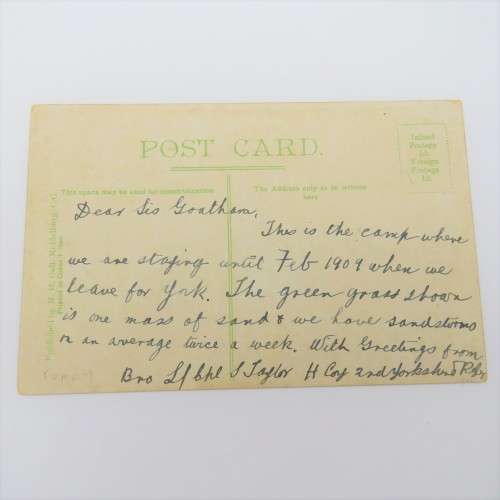 POST CARD.
Inland
Postage
½d.
Foreign
Postage
1d.
This space may be used for communication
The Address only to be written
here
Dear Sis Goatham,
This is the camp where
we are staying until Feb 1909 when we
leave for York. The green grass shown
is one mass of sand & we have sandstorms
on an average twice a week. With Greetings from
Bro L/Cpl S Taylor H Coy 2nd Yorkshire Rgt